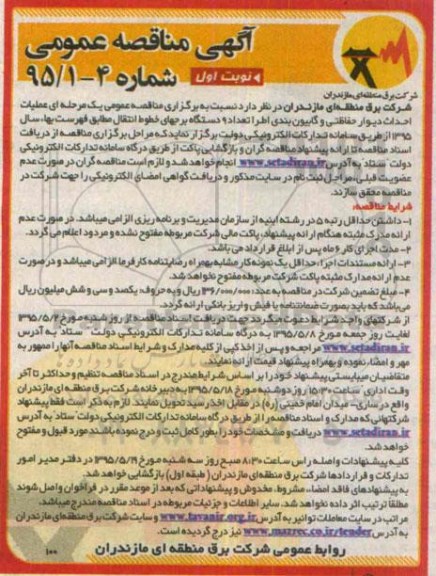 آگهی مناقصه عمومی
نوبت اول
شماره ۴-۹۵/۱
شرکت برق منطقه‌ای مازندران
شرکت برق منطقه‌ای مازندران در نظر دارد نسبت به برگزاری مناقصه عمومی یک مرحله ای عملیات
احداث دیوار حفاظتی و گابیون بندی اطراف تعداد ۹ دستگاه برجهای خطوط انتقال مطابق فهرست بهاء سال
۱۳۹۵ از طریق سامانه تدارکات الکترونیکی دولت برگزار نماید که مراحل برگزاری مناقصه از دریافت
اسناد مناقصه تا ارائه پیشنهاد مناقصه گران و بازگشایی پاکت از طریق درگاه سامانه تدارکات الکترونیکی
دولت ستاد به آدرس www.setadiran.ir انجام خواهد شد و لازم است مناقصه گران در صورت عدم
عضویت قبلی، مراحل ثبت نام در سایت مذکور و دریافت گواهی امضای الکترونیکی را جهت شرکت در
مناقصه محقق سازند.
شرایط مناقصه:
۱- داشتن حداقل رتبه ۵ در رشته ابنیه از سازمان مدیریت و برنامه ریزی الزامی میباشد. در صورت عدم
ارائه مدرک مثبته هنگام ارائه پیشنهاد، پاکت مالی شرکت مربوطه مفتوح نشده و مردود اعلام می گردد.
۲- مدت اجرای کار ۶ ماه پس از ابلاغ قرارداد می باشد.
۳- ارائه مستندات اجرا حداقل یک نمونه کار مشابه بهمراه رضایتنامه کارفرما الزامی میباشد و در صورت
عدم ارائه مدارک مثبته پاکت شرکت مربوطه مفتوح نخواهد شد.
۴- مبلغ تضمین شرکت در مناقصه به عدد: ۱۳۶/۰۰۰/۰۰۰ ریال و به حروف: یکصد و سی و شش میلیون ریال
می باشد که باید بصورت ضمانتنامه یا فیش واریز بانکی ارائه گردد.
از شرکتهای واجد شرایط دعوت میگردد جهت دریافت اسناد مناقصه از روز شنبه مورخ ۱۳۹۵/۵/۲
لغایت روز جمعه مورخ ۱۳۹۵/۵/۸ به درگاه سامانه تدارکات الکترونیکی دولت ستاد به آدرس
www.setadiran.ir مراجعه و پس از اخذ کپی از کلیه مدارک و شرایط اسناد مناقصه آنها را ممهور به
مهر و امضاء نموده و بهمراه پیشنهاد قیمت ارائه نمایند
متقاضیان میبایستی پیشنهاد خود را بر اساس شرایط مندرج در اسناد مناقصه تنظیم و حداکثر تا آخر
وقت اداری ساعت ۱۵:۳۰ روز دوشنبه مورخ ۱۳۹۵/۵/۱۸ به دبیرخانه شرکت برق منطقه ای مازندران
واقع در ساری- میدان امام خمینی (ره) در مقابل اخذ رسید تحویل نمایند. لازم به ذکر است فقط پیشنهاد
شرکتهائی که مدارک و اسناد مناقصه را از طریق درگاه سامانه تدارکات الکترونیکی دولت ستاد به آدرس
www.setadiran.ir دریافت و مشخصات خود را بطور کامل ثبت و درج نموده باشند مورد قبول و مفتوح
خواهد شد.
کلیه پیشنهادات واصله راس ساعت ۸:۳۰ صبح روز سه شنبه مورخ ۱۳۹۵/۵/۱۹ در دفتر مدیر امور
تدارکات و قراردادها شرکت برق منطقه‌ای مازندران (طبقه اول) بازگشایی خواهد شد.
به پیشنهادهای فاقد امضاء، مشروط، مخدوش و پیشنهاداتی که بعد از موعد مقرر در فراخوان واصل شوند
مطلقاً ترتیب اثر داده نخواهد شد. سایر اطلاعات و جزئیات مربوطه در اسناد مناقصه مندرج میباشد.
مراتب در سایت معاملات توانیر به آدرس www.tavanir.org.ir و سایت شرکت برق منطقه‌ای مازندران
به آدرس www.mazrec.co.ir/tender نیز درج گردیده است.
روابط عمومی شرکت برق منطقه ای مازندران
۱۰۰